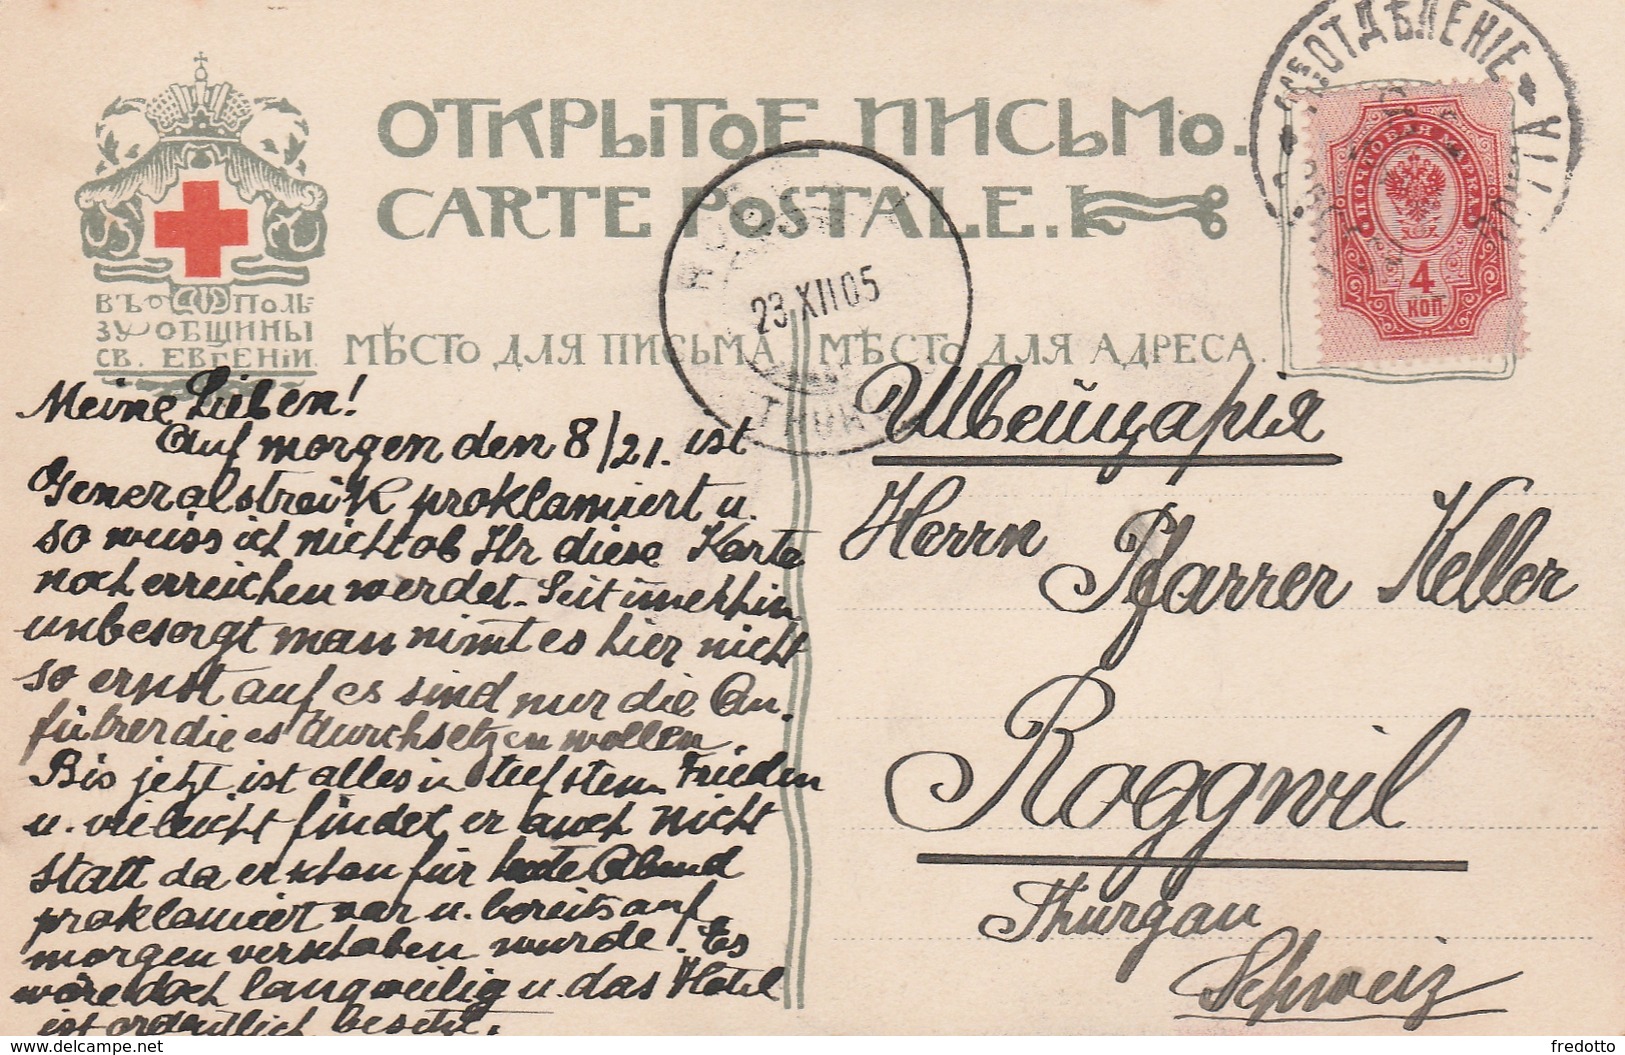 ОТКРЫТОЕ ПИСЬМО.
CARTE POSTALE.
ВЪ ПОЛЬ-
ЗУ ОБЩИНЫ
СВ. ЕВГЕНІИ.
МѢСТО ДЛЯ ПИСЬМА. МѢСТО ДЛЯ АДРЕСА.
ОТДѢЛЕНІЕ
ПОЧТОВАЯ МАРКА
4
КОП
23.XII.05
Meine Lieben!
Auf morgen den 8/21. ist
Generalstreik proklamiert u.
so weiss ich nicht ob Ihr diese Karte
noch erreichen werdet. Seit immerhin
unbesorgt man nimt es hier nicht
so ernst auf es sind nur die An-
führer die es durchsetzen wollen.
Bis jetzt ist alles in tiefstem Frieden
u. vieleicht findet er auch nicht
statt da er schon für heute Abend
proklamiert war u. bereits auf
morgen verschoben wurde. Es
wäre doch langweilig u. das Hotel
ist ordentlich besetzt.
Швейцарія
Herrn Pfarrer Keller
Roggwil
Thurgau
Schweiz
delcampe.net
fredotto